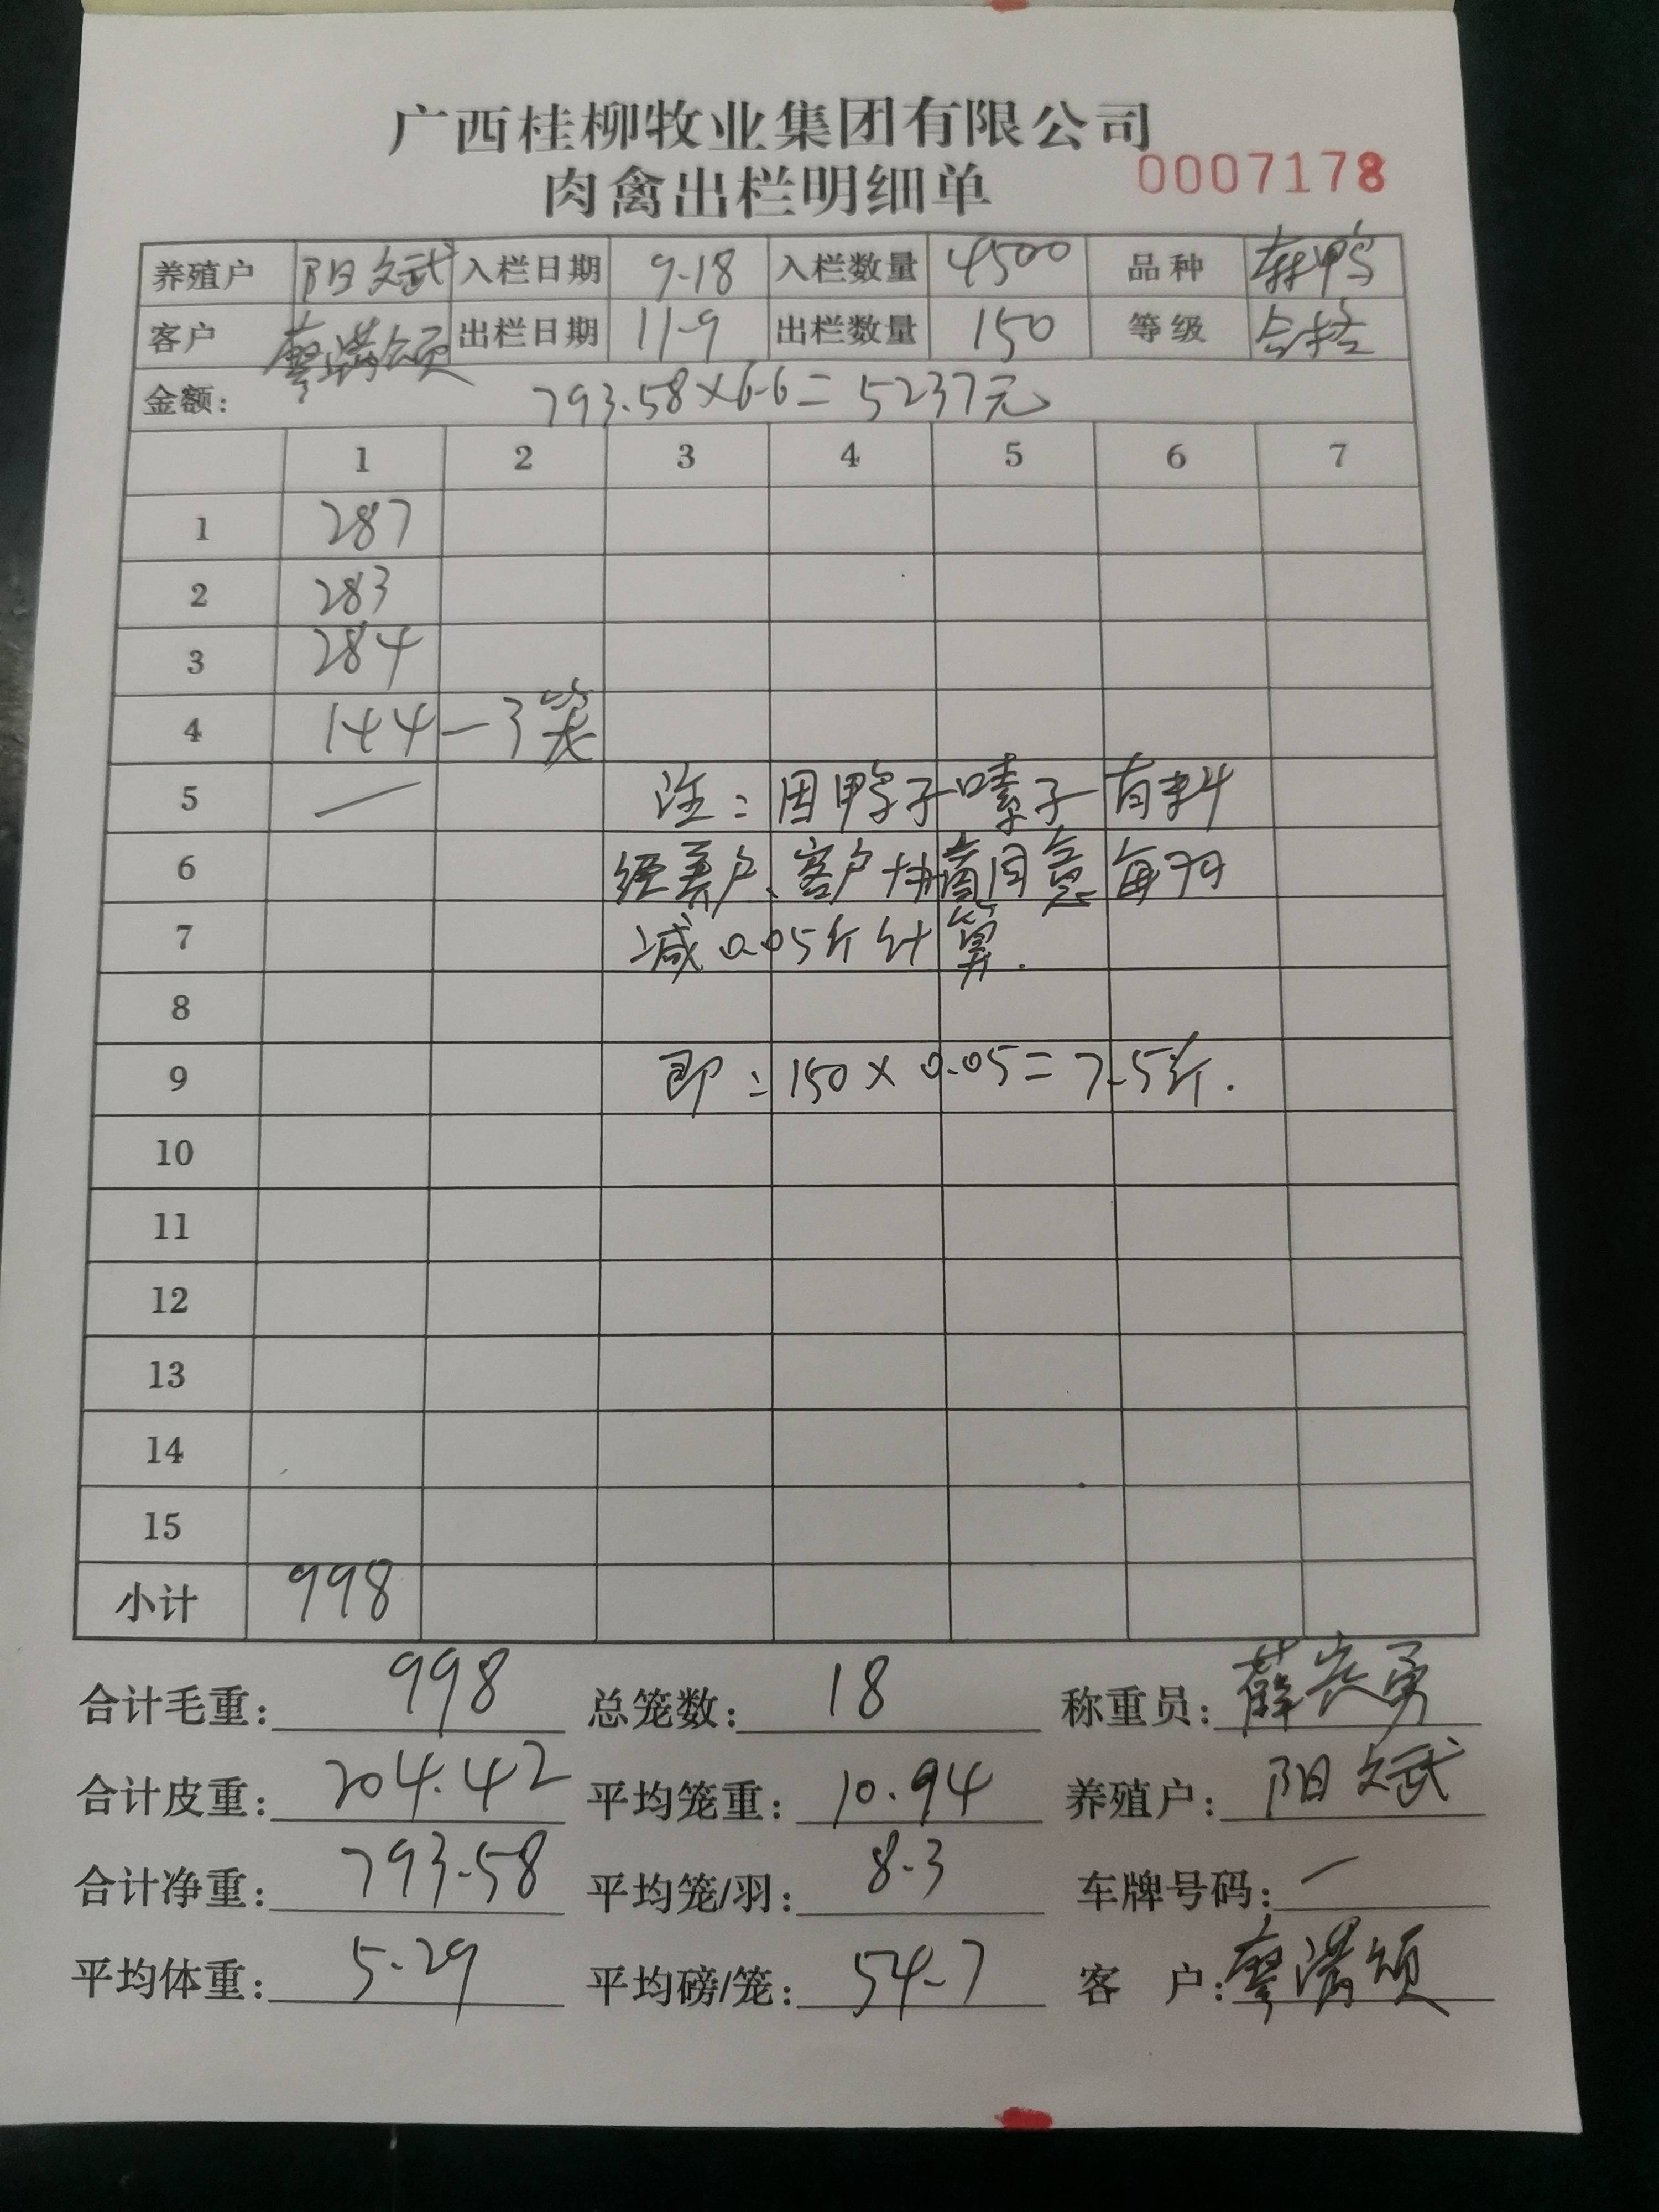 广西桂柳牧业集团有限公司
肉禽出栏明细单 0007178
养殖户 阳文武 入栏日期 9-18 入栏数量 4500 品种 鸭
客户 廖满颂 出栏日期 11-9 出栏数量 150 等级 合格
金额: 793.58×6.6=5237元
1 2 3 4 5 6 7
1 287
2 283
3 284
4 144 — 3笼
5 — 注:因鸭子嗉子有料
6 经养户、客户协商同意每羽
7 减0.05斤计算.
8
9 即:150×0.05=7.5斤.
10
11
12
13
14
15
小计 998
合计毛重: 998 总笼数: 18 称重员: 薛 勇
合计皮重: 204.42 平均笼重: 10.94 养殖户: 阳文武
合计净重: 793.58 平均笼/羽: 8.3 车牌号码: —
平均体重: 5.29 平均磅/笼: 54.7 客户: 廖满颂